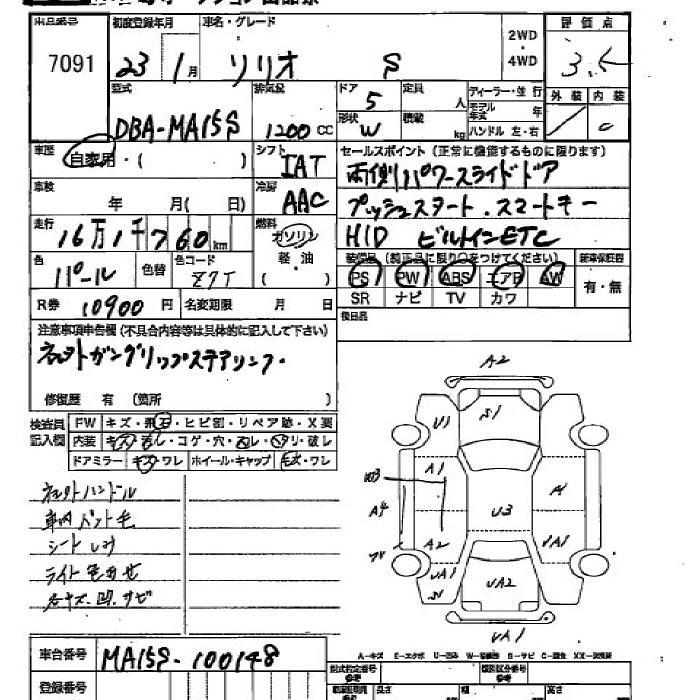 出品番号 初度登録年月 車名・グレード 2WD・4WD 評価点
7091 23 1月 ソリオ S 3.5
型式 排気量 ドア 定員 ディーラー・並行 外装 内装
DBA-MA15S 1200 CC 5 人 モデル年式 年
形状 W 積載 kg ハンドル 左・右 C
車歴 自家用・( ) シフト IAT セールスポイント(正常に機能するものに限ります)
両側パワースライドドア
車検 年 月( 日) 冷房 AAC プッシュスタート.スマートキー
走行 16万1千760km 燃料 ガソリン HID ビルトインETC
軽・油 ( ) 装備品(純正品に限り○をつけてください) 新車保証書
色 パール 色替 色コード Z7T PS PW ABS エアB AW 有・無
R券 10900円 名変期限 月 日 SR ナビ TV カワ
注意事項申告欄(不具合内容等は具体的に記入して下さい) 後日品
ガングリップステアリング.
修復歴 有 (箇所 )
検査員記入欄 FW キズ・飛石・ヒビ割・リペア跡・X要
内装 キズ・汚レ・コゲ・穴・スレ・ヘタリ・破レ
ドアミラー キズ・ワレ ホイール・キャップ キズ・ワレ
ハンドル
車内
シート
ライト色あせ
キズ.凹.サビ
A2
U1 S1
W3 A1
A4 U3 A
A2 UA1
UA1 UA2
UA1
A-キズ E-エクボ U-凹み W-補修跡 S-サビ C-腐食 XX-交換済
車台番号 MA15S-100148 型式指定番号 参考 類別区分番号 参考
登録番号 長さ 幅 高さ